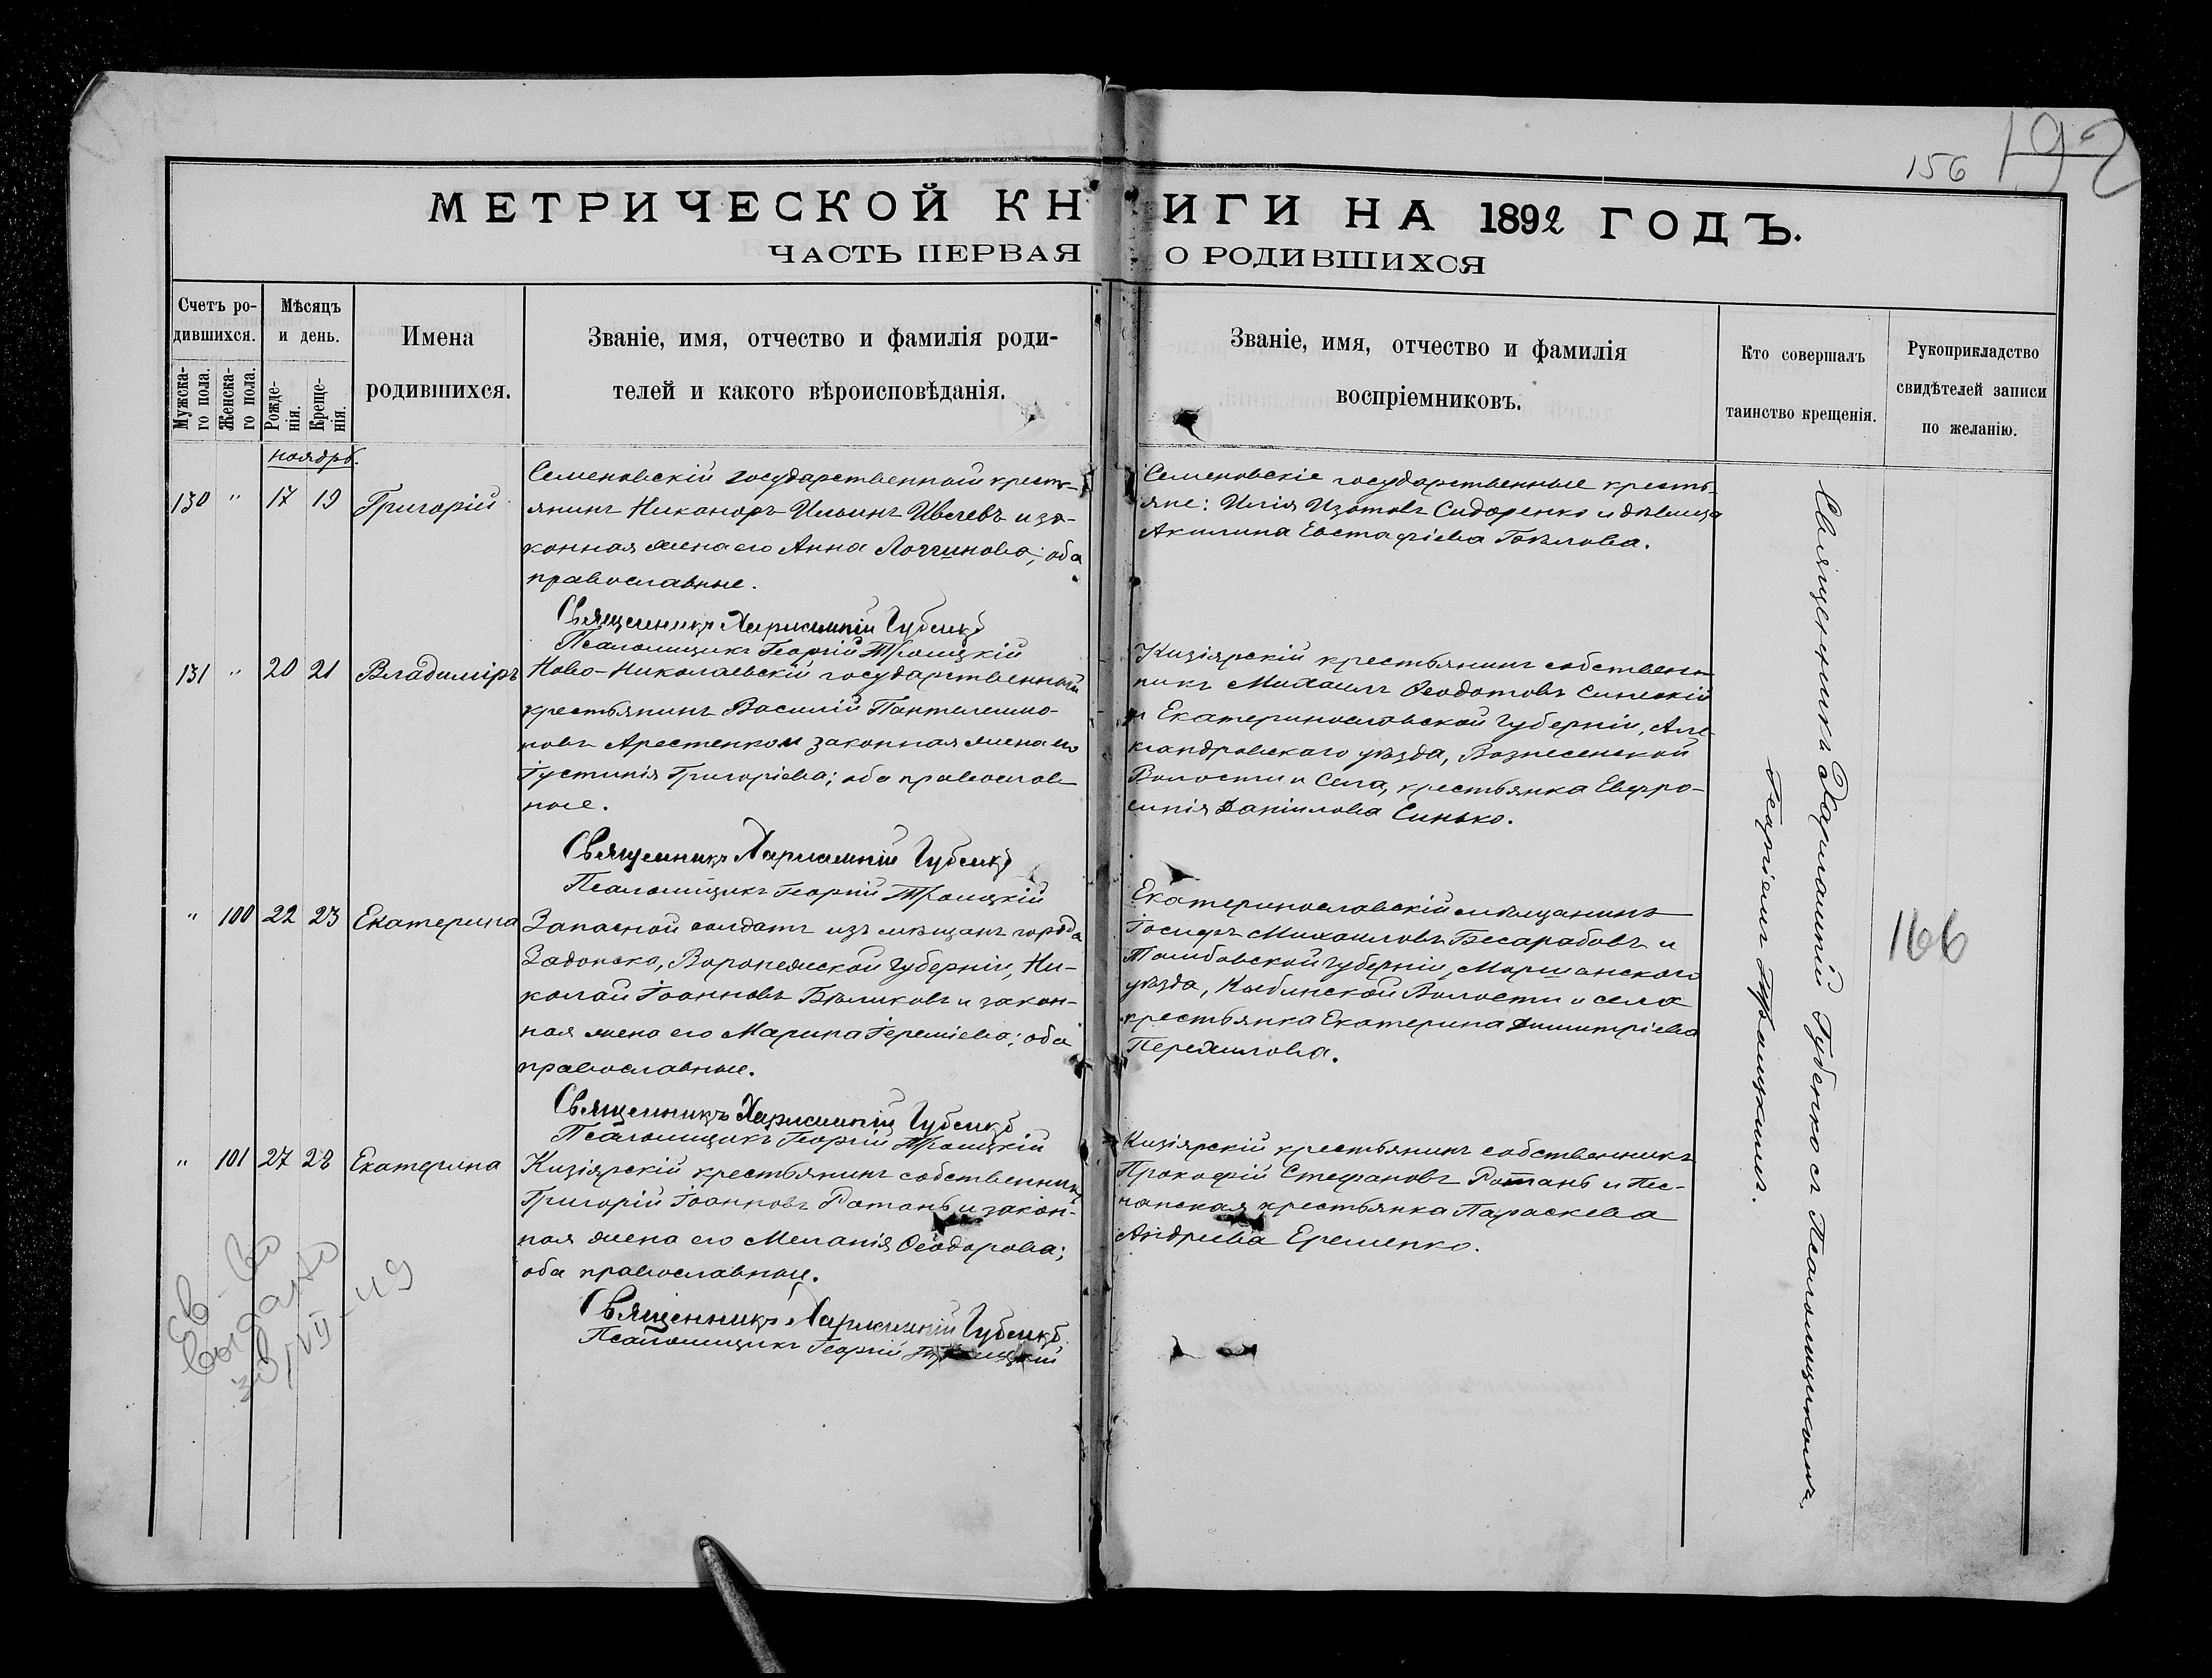 156 192
МЕТРИЧЕСКОЙ КНИГИ НА 1892 ГОДЪ.
ЧАСТЬ ПЕРВАЯ О РОДИВШИХСЯ
Счетъ родившихся.
Мужскаго пола.
Женскаго пола.
Мѣсяцъ и день.
Рожденія.
Крещенія.
Имена
родившихся.
Званіе, имя, отчество и фамилія роди-
телей и какого вѣроисповѣданія.
Званіе, имя, отчество и фамилія
воспріемниковъ.
Кто совершалъ
таинство крещенія.
Рукоприкладство
свидѣтелей записи
по желанію.
ноябрь.
130 " 17 19 Григорій
Семеновскій государственный кресть-
янинъ Никаноръ Ильинъ Ивлевъ и за-
конная жена его Анна Логгинова; оба
православные.
Священникъ Харлампій Губенко
Псаломщикъ Георгій Троицкій
Семеновскіе государственные кресть-
яне: Илія Изотовъ Сидоренко и дѣвица
Акилина Евстафіева
131 " 20 21 Владиміръ
Ново-Николаевскій государственный
крестьянинъ Василій Пантелеимо-
новъ Арестенко и законная жена его
Іустинія Григоріева; оба православ-
ные.
Священникъ Харлампій Губенко
Псаломщикъ Георгій Троицкій
Кизіярскій крестьянинъ собствен-
никъ Михаилъ Ѳеодотовъ
и Екатеринославской губерніи, Але-
ксандровскаго уѣзда, Вознесенской
Волости и Села, крестьянка Евфро-
синія Даніилова Синько.
" 100 22 23 Екатерина
Запасной солдатъ изъ мѣщанъ города
Задонска, Воронежской губерніи, Ни-
колай Іоанновъ Бѣликовъ и закон-
ная жена его Марина Іереміева; оба
православные.
Священникъ Харлампій Губенко
Псаломщикъ Георгій Троицкій
Екатеринославскій мѣщанинъ
Іосифъ Михаиловъ Бесарабовъ и
Тамбовской губерніи, Моршанскаго
уѣзда, Волости и села
крестьянка Екатерина Димитріева
" 101 27 28 Екатерина
Кизіярскій крестьянинъ собственникъ
Григорій Іоанновъ Ротань и закон-
ная жена его Меланія Ѳеодорова;
оба православные.
Священникъ Харлампій Губенко
Псаломщикъ Георгій Троицкій
Кизіярскій крестьянинъ собственникъ
Прокофій Стефановъ Ротань и Пес-
чанская крестьянка Параскева
Андреева Еременко.
Священникъ Харлампій Губенко съ Псаломщикомъ
Георгіемъ Троицкимъ.
166
Св-во
выдано
30/VII-49